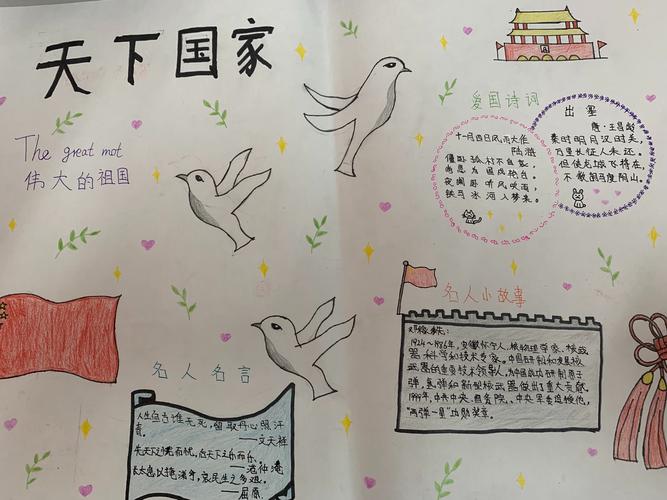 天下国家
The great mot
伟大的祖国
爱国诗词
十一月四日风雨大作
陆游
僵卧孤村不自哀,
尚思为国戍轮台。
夜阑卧听风吹雨,
铁马冰河入梦来。
出塞
唐·王昌龄
秦时明月汉时关,
万里长征人未还。
但使龙城飞将在,
不教胡马度阴山。
名人名言
人生自古谁无死,留取丹心照汗
青。
——文天祥
先天下之忧而忧,后天下之乐而乐。
——范仲淹
太息以掩涕兮,哀民生之多艰。
——屈原
名人小故事
邓稼先:
1924~1986年,安徽怀宁人,核物理学家、核武
器科学和技术专家。中国研制和发展核
武器的重要技术领导人,为中国成功研制原子
弹,氢弹和新型核武器做出了重大贡献。
1999年,中共中央、国务院、中央军委追授他,
"两弹一星"功勋奖章。